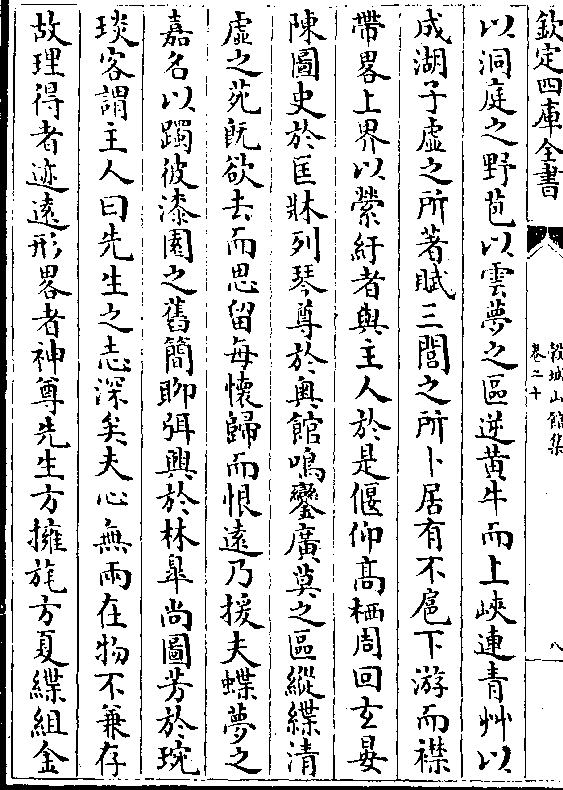 欽定四庫全書
穀城山館集
卷二十
八
以洞庭之野苞以雲夢之區逆黃牛而上峽連青艸以
成湖子虛之所著賦三閭之所卜居有不扈下游而襟
帶畧上界以縈紆者與主人於是偃仰髙栖周回玄晏
陳圖史於匡牀列琴尊於奥館鳴鑾廣莫之區縱緤清
虛之苑既欲去而思留每懷歸而恨遠乃援夫蝶夢之
嘉名以躅彼漆園之舊簡聊弭興於林臯尚圖芳於琬
琰客謂主人曰先生之志深矣夫心無兩在物不兼存
故理得者迹遠形畧者神尊先生方擁旄方夏緤組金